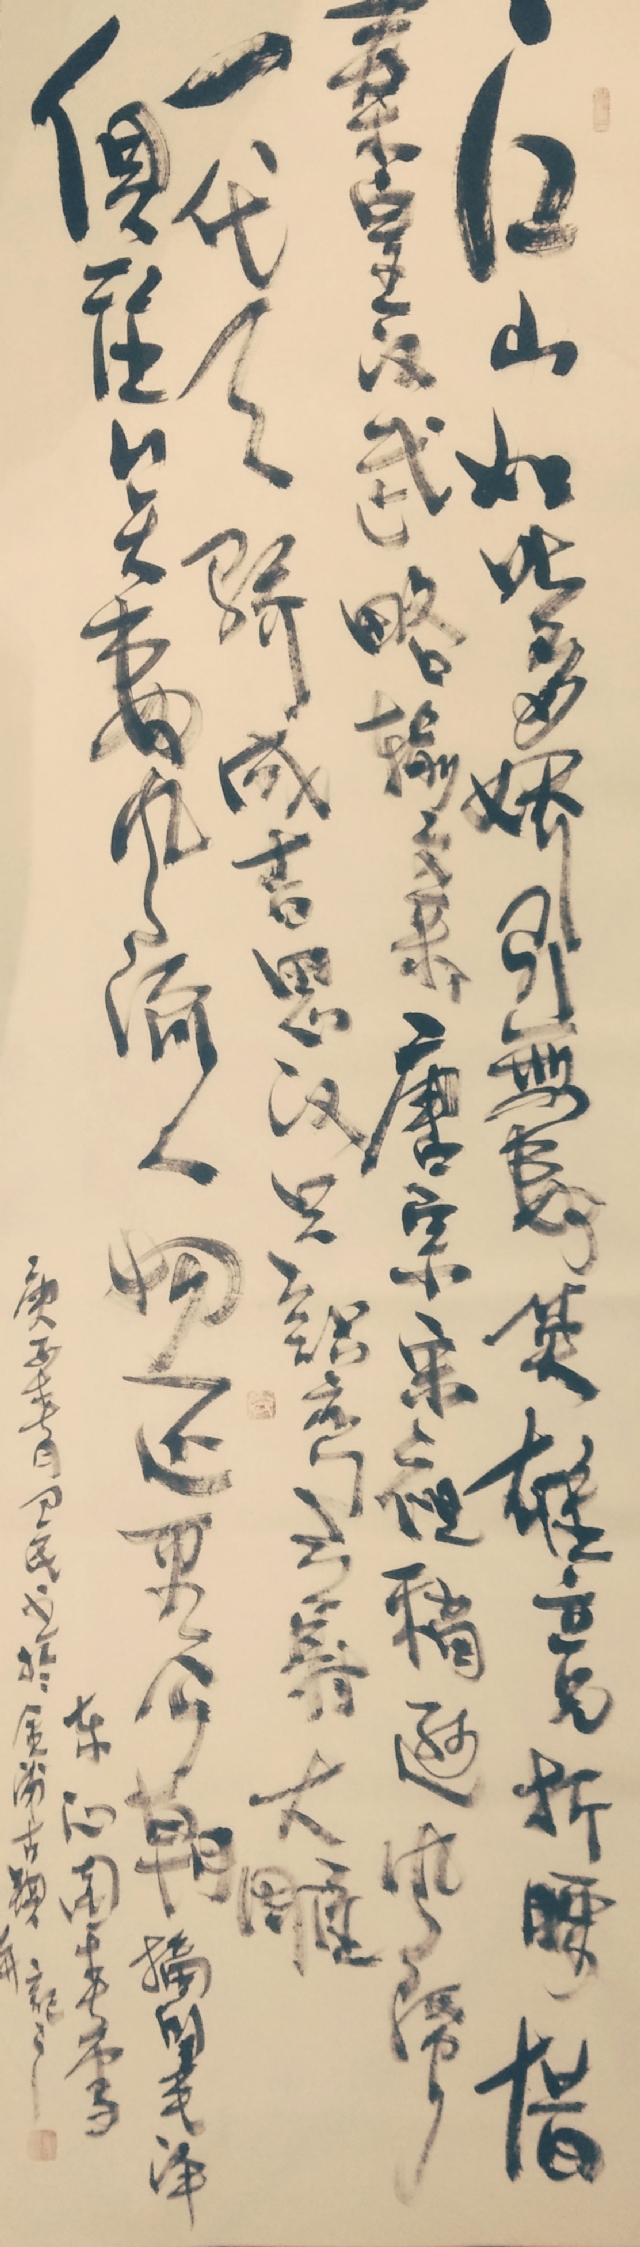 江山如此多娇引無數英雄竞折腰惜
秦皇汉武略输文采唐宗宋祖稍遜风骚
一代天骄成吉思汗只識弯弓射大雕
俱往矣數风流人物还看今朝摘自毛泽
东沁园春雪
庚子春月卫民书於金